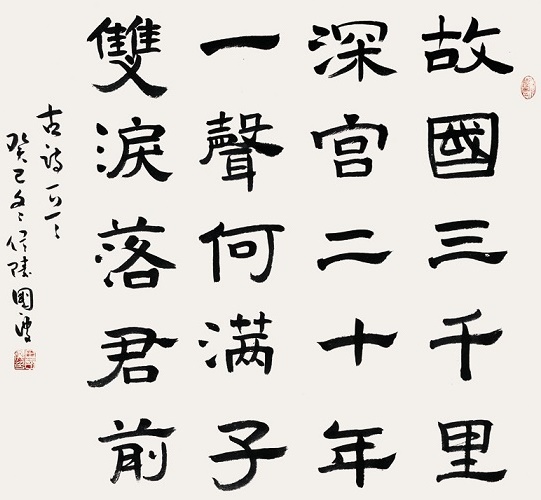 故國三千里
深宫二十年
一聲何满子
雙淚落君前
古詩一首
癸巳冬 國